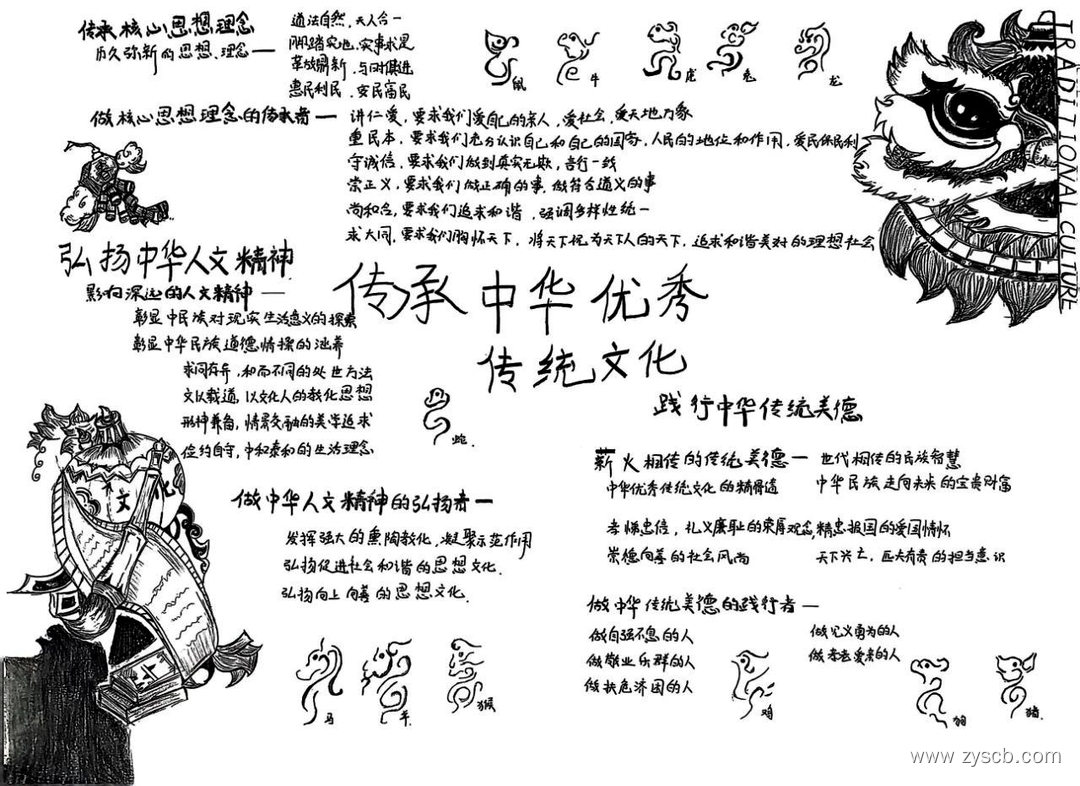 传承核心思想理念
历久弥新的思想、理念—
道法自然，天人合一
脚踏实地，实事求是
革故鼎新，与时俱进
惠民利民，安民富民
鼠
牛
虎
兔
龙
TRADITIONAL CULTURE
做核心思想理念的传承者—
讲仁爱，要求我们爱自己的亲人，爱社会，爱天地万象
重民本，要求我们充分认识自己和自己的国家，人民的地位和作用，爱民保民利
守诚信，要求我们做到真实无欺，言行一致
崇正义，要求我们做正确的事，做符合道义的事
尚和合，要求我们追求和谐，强调多样性统一
求大同，要求我们胸怀天下，将天下视为天下人的天下，追求和谐美对的理想社会
弘扬中华人文精神
影响深远的人文精神—
彰显中民族对现实生活意义的探索
彰显中华民族道德情操的涵养
求同存异，和而不同的处世方法
文以载道，以文化人的教化思想
形神兼备，情景交融的美学追求
俭约自守，中和泰和的生活理念
传承中华优秀
传统文化
蛇.
文化
做中华人文精神的弘扬者—
发挥强大的熏陶教化，凝聚示范作用
弘扬促进社会和谐的思想文化.
弘扬向上向善的思想文化.
马
羊.
猴
践行中华传统美德
薪火相传的传统美德—
世代相传的民族智慧
中华优秀传统文化的精得遗
中华民族走向未来的宝贵财富
孝悌忠信，礼义廉耻的荣辱观念
精忠报国的爱国情怀
崇德向善的社会风尚
天下兴亡，匹夫有责的担当意识
做中华传统美德的践行者—
做自强不息的人
做敬业乐群的人
做扶危济困的人
做见义勇为的人
做孝老爱亲的人
鸡
狗
猪.
www.zyscb.com